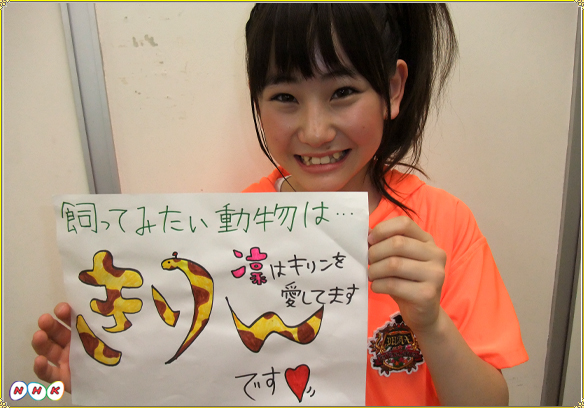 飼ってみたい動物は…
きりん
凛はキリンを
愛してます
です♥
NHK